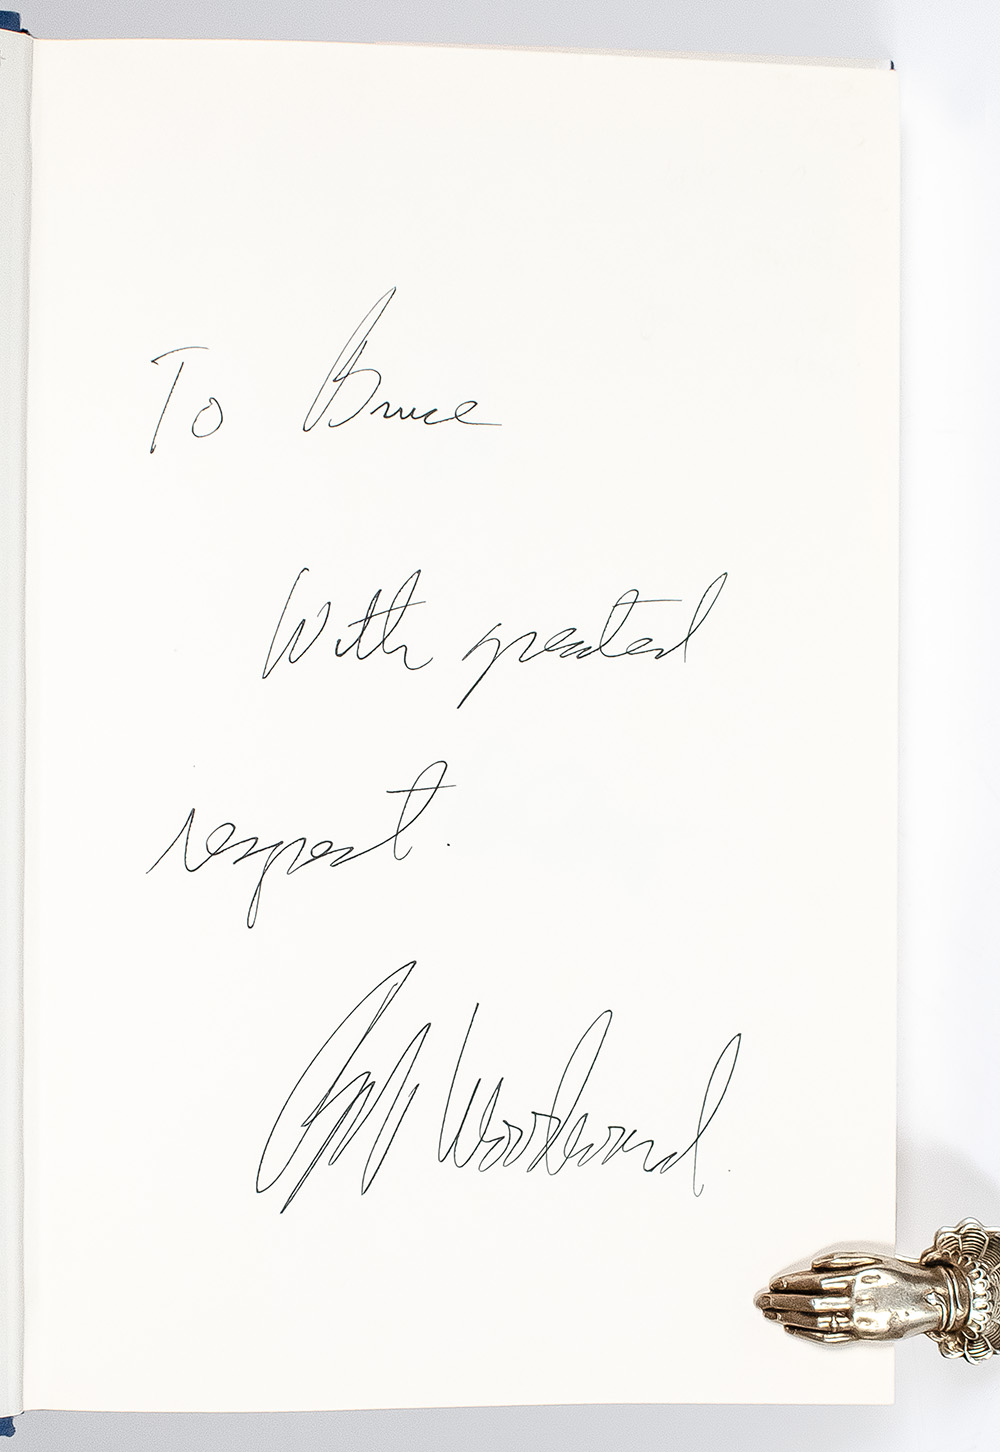 To Bruce
With greatest
respect.
Bob Woodward